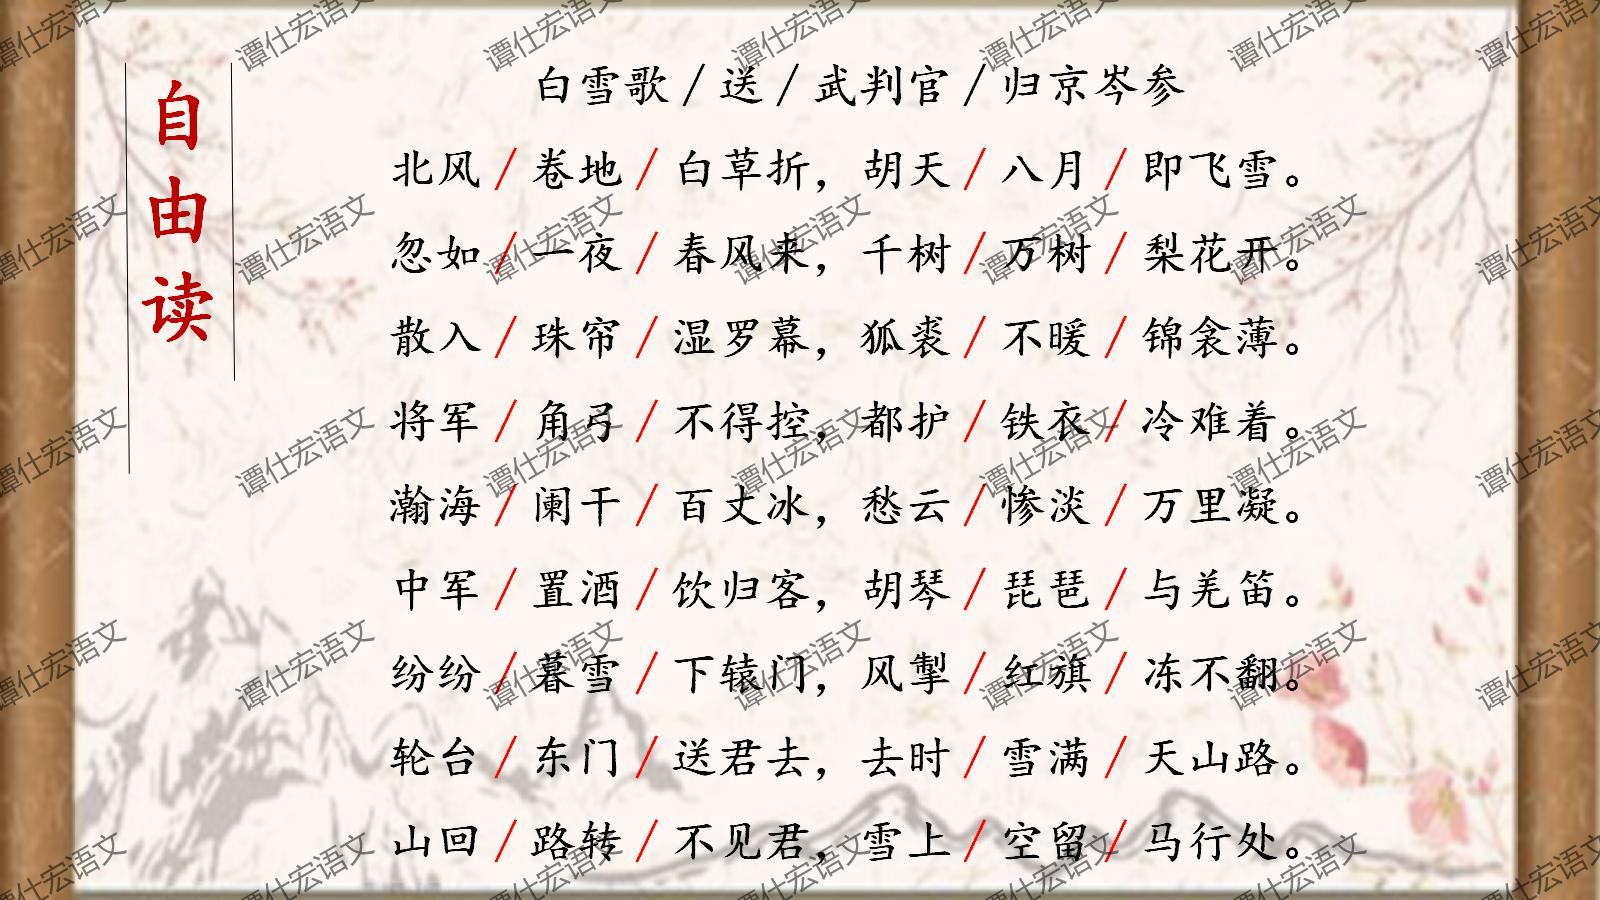 自由读
白雪歌/送/武判官/归京岑参
北风/卷地/白草折，胡天/八月/即飞雪。
忽如/一夜/春风来，千树/万树/梨花开。
散入/珠帘/湿罗幕，狐裘/不暖/锦衾薄。
将军/角弓/不得控，都护/铁衣/冷难着。
瀚海/阑干/百丈冰，愁云/惨淡/万里凝。
中军/置酒/饮归客，胡琴/琵琶/与羌笛。
纷纷/暮雪/下辕门，风掣/红旗/冻不翻。
轮台/东门/送君去，去时/雪满/天山路。
山回/路转/不见君，雪上/空留/马行处。
谭仕宏语文